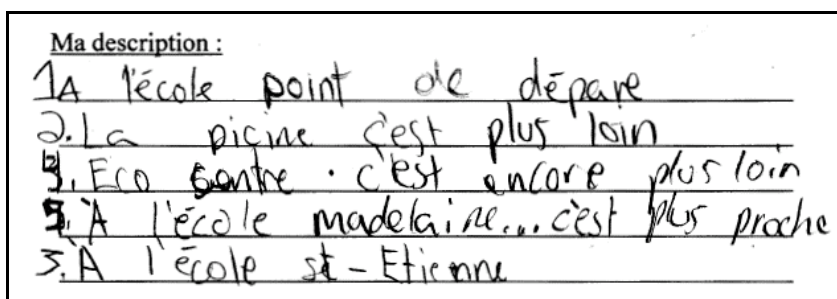 Ma description :
1A l'école point de dépare
2. La picine c'est plus loin
4. Eco sentre. c'est encore plus loin
5. À l'école madelaine... c'est plus proche
3. À l'école st-Etienne